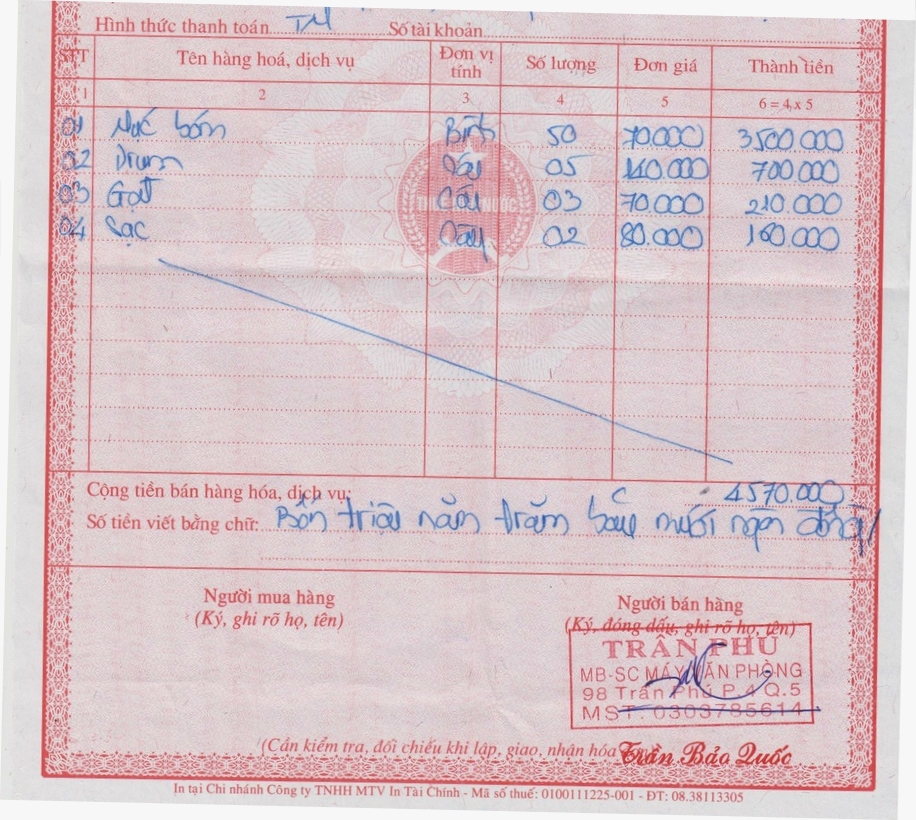 Hình thức thanh toán TM Số tài khoản
STT Tên hàng hoá, dịch vụ Đơn vị tính Số lượng Đơn giá Thành tiền
1 2 3 4 5 6 = 4 x 5
01 Mực bơm Bình 50 70.000 3500.000
02 Drum Cây 05 140.000 700.000
03 Gạt Cây 03 70.000 210.000
04 Sạc Cây 02 80.000 160.000
Cộng tiền bán hàng hóa, dịch vụ 4570.000
Số tiền viết bằng chữ: Bốn triệu năm trăm bảy mươi ngàn đồng/
Người mua hàng Người bán hàng
(Ký, ghi rõ họ, tên) (Ký, đóng dấu, ghi rõ họ, tên)
TRẦN PHÚ
MB-SC MÁY VĂN PHÒNG
98 Trần Phú P.4 Q.5
MST: 0303785614
(Cần kiểm tra, đối chiếu khi lập, giao, nhận hóa
Trần Bảo Quốc
In tại Chi nhánh Công ty TNHH MTV In Tài Chính - Mã số thuế: 0100111225-001 - ĐT: 08.38113305